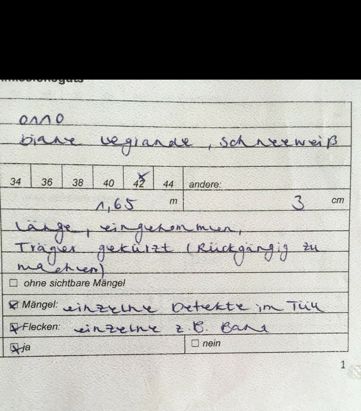 onno
biane legrande, schneeweiß
34 36 38 40 42 44 andere:
1,65 m 3 cm
Länge, eingenommen,
Träger gekürzt (Rückgängig zu
machen)
☐ ohne sichtbare Mängel
☒ Mängel: einzelne Defekte im Tüll
☒ Flecken: einzelne z.B. Band
☒ ja ☐ nein
1